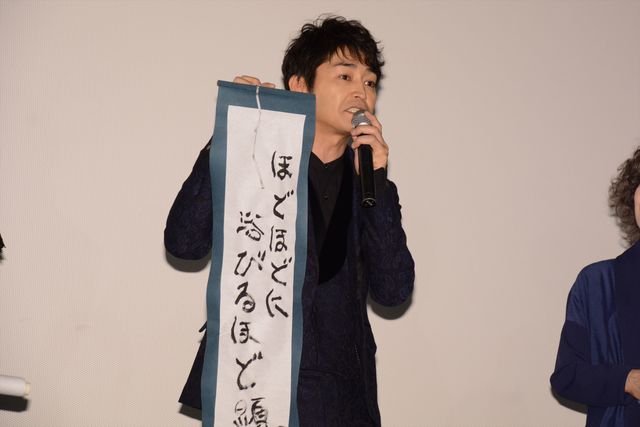 ほどほどに
浴びるほど願